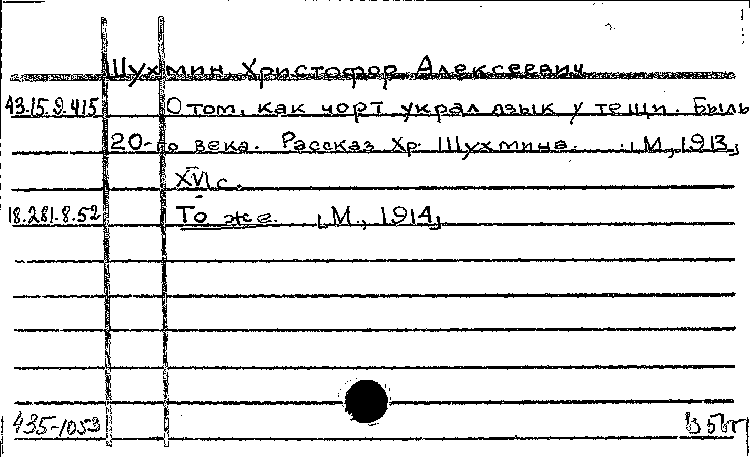 Шухмин Христофор Алексеевич
43.15.9.415 О том, как чорт украл язык у тещи. Быль
20-го века. Рассказ Хр. Шухмина. [М., 1913]
XVI с.
18.281.8.52 То же. [М., 1914]
435-1053